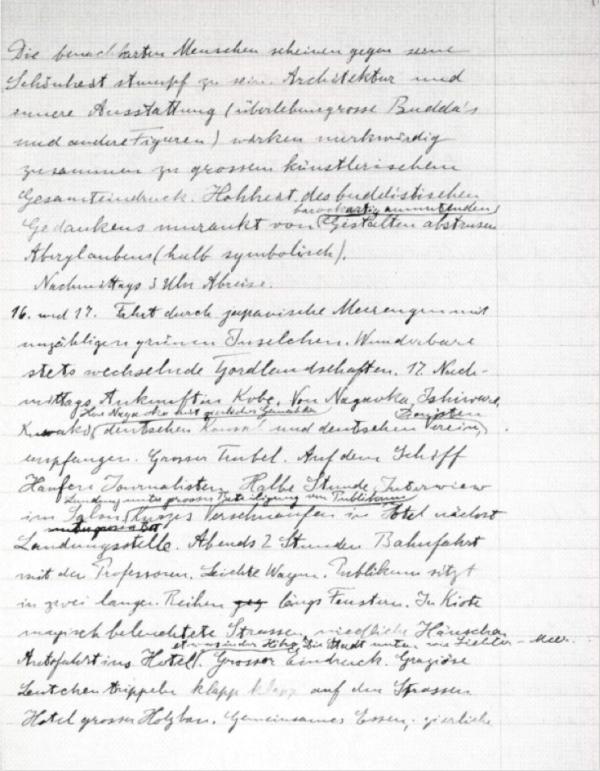 Die benachbarten Menschen scheinen gegen seine
Schönheit stumpf zu sein. Architektur und
innere Ausstattung (überlebensgrosse Budda's
und andere Figuren) wirken merkwürdig
zusammen zu grossem künstlerischem
Gesamteindruck. Hohheit des buddistischen
barockartig anmutenden
Gedankens umrankt von Gestalten abstrusen
Aberglaubens (halb symbolisch).
Nachmittags 3 Uhr Abreise.
16. und 17. Fahrt durch japanische Meerengen mit
unzähligen grünen Inselchen. Wunderbare
stets wechselnde Fjordlandschaften. 17. Nach-
mittags Ankunft in Kobe. Von Nagaoka, Ishiwara,
Herr Nagaoka mit zierlicher Gemahlin
Zionisten
Kuwaki, deutschen Konsul und deutschem Verein
empfangen. Grosser Trubel. Auf dem Schiff
Haufen Journalisten. Halbe Stunde Interview
Landung unter grosser Beteiligung von Publikum
im Salon. Kurzes Verschnaufen in Hotel nächst
Landungsstelle. Abends 2 Stunden Bahnfahrt
mit den Professoren. Leichte Wagen. Publikum sitzt
in zwei langen Reihen längs Fenstern. In Kioto
magisch beleuchtete Strassen, niedliche Häuschen
etwas in der Höhe. Die Stadt unten wie Lichter-Meer.
Autofahrt ins Hotel. Grosser Eindruck. Graziöse
Leutchen trippeln klapp klapp auf den Strassen
Hotel grosser Holzbau. Gemeinsames Essen, zierliche